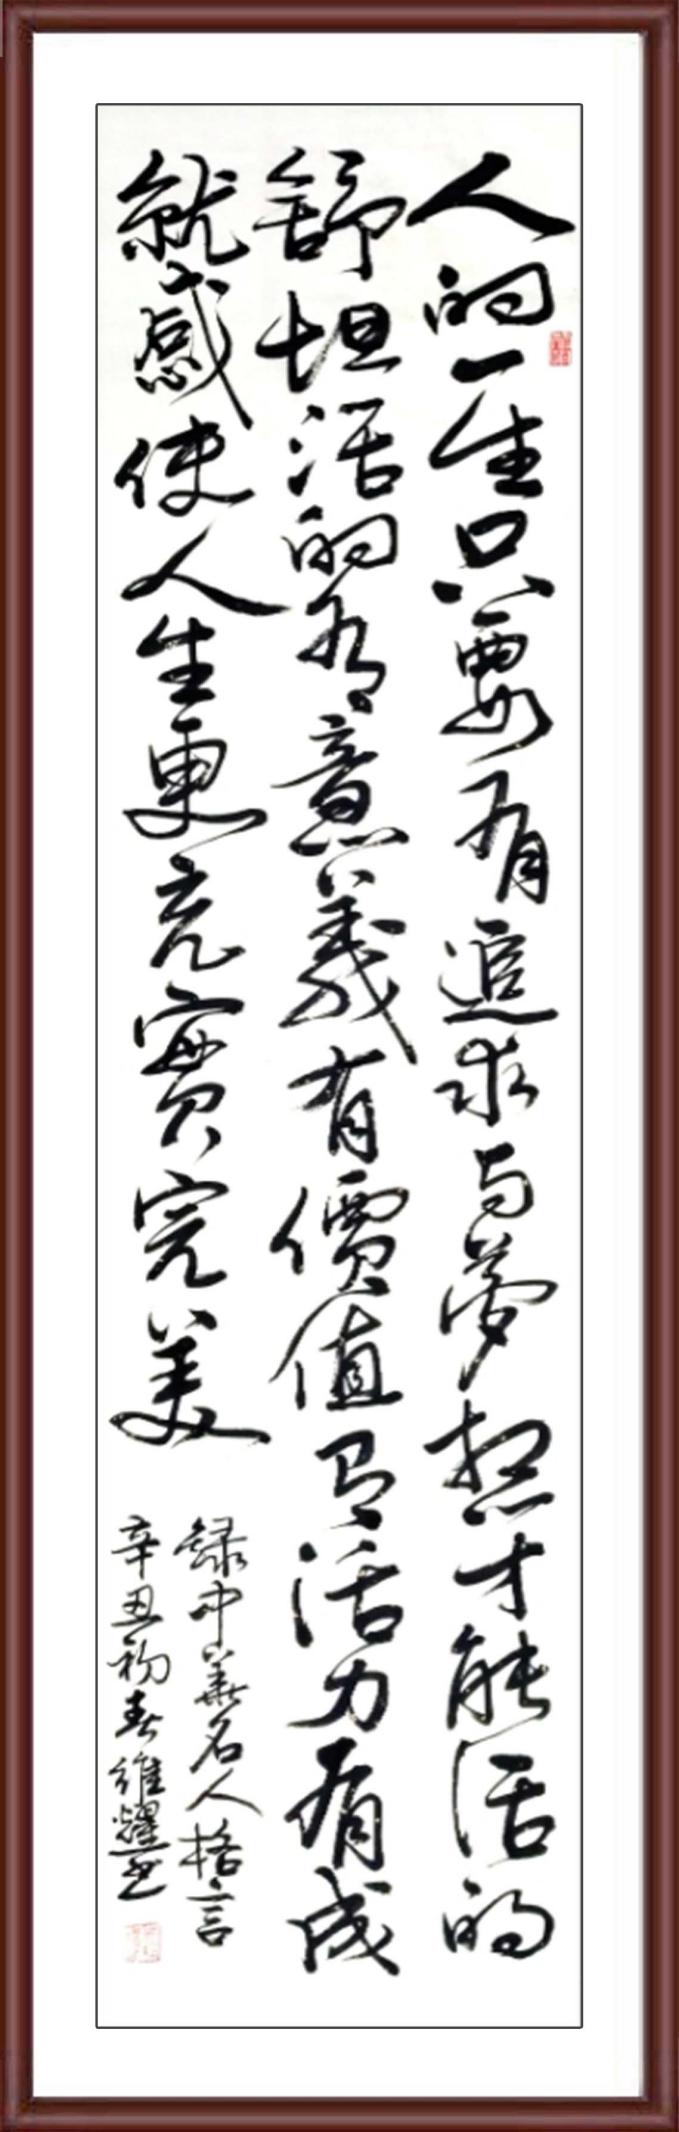 人的一生只要有追求与夢想才能活的
舒坦活的有意義有價值有活力有成
就感使人生更充實完美
録中華名人格言
辛丑初春維耀書